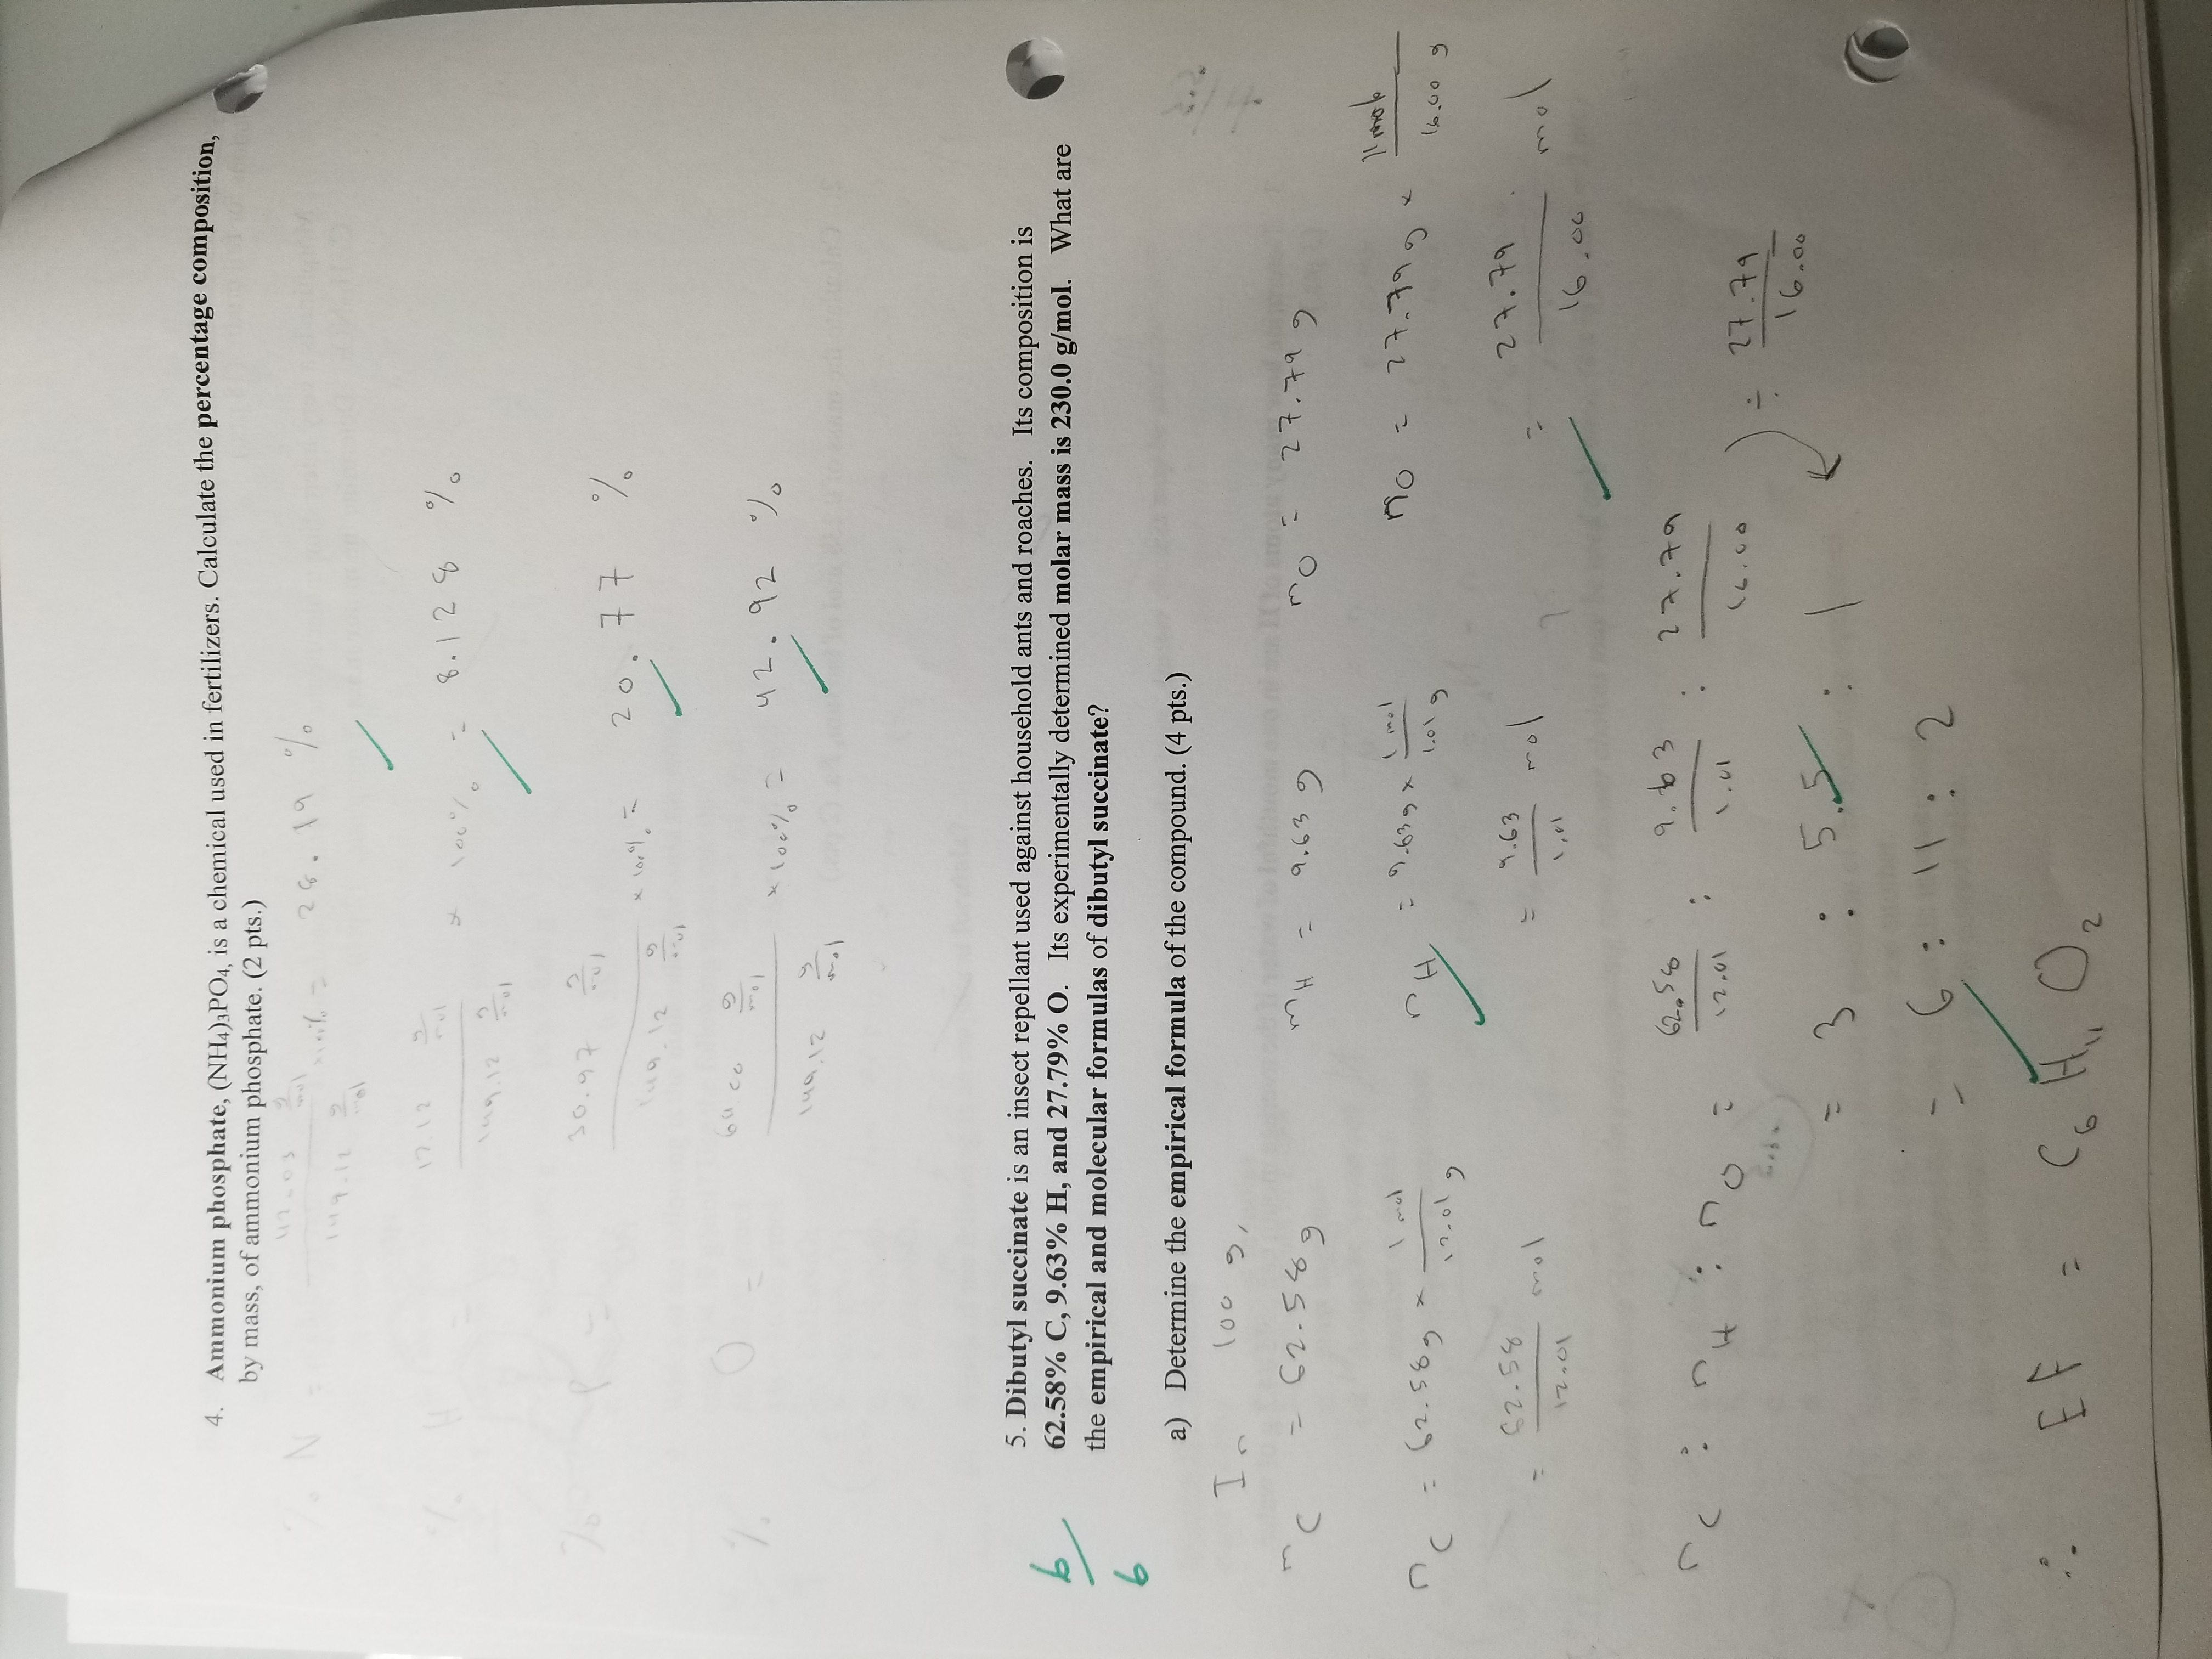 4. Ammonium phosphate, (NH₄)₃PO₄, is a chemical used in fertilizers. Calculate the percentage composition,
by mass, of ammonium phosphate. (2 pts.)
% N = 42.03 g/mol / 149.12 g/mol × 100% = 28.19 %
% H = 12.12 g/mol / 149.12 g/mol × 100% = 8.128 %
% P = 30.97 g/mol / 149.12 g/mol × 100% = 20.77 %
% O = 64.00 g/mol / 149.12 g/mol × 100% = 42.92 %
6/6
5. Dibutyl succinate is an insect repellant used against household ants and roaches. Its composition is
62.58% C, 9.63% H, and 27.79% O. Its experimentally determined molar mass is 230.0 g/mol. What are
the empirical and molecular formulas of dibutyl succinate?
a) Determine the empirical formula of the compound. (4 pts.)
In 100 g,
m_C = 62.58 g m_H = 9.63 g m_O = 27.79 g
n_C = 62.58 g × 1 mol / 12.01 g n_H = 9.63 g × 1 mol / 1.01 g n_O = 27.79 g × 1 mol / 16.00 g
= 62.58 / 12.01 mol = 9.63 / 1.01 mol = 27.79 / 16.00 mol
n_C : n_H : n_O = 62.58 / 12.01 : 9.63 / 1.01 : 27.79 / 16.00 ÷ 27.79 / 16.00
= 3 : 5.5 : 1
= 6 : 11 : 2
∴ EF = C₆H₁₁O₂